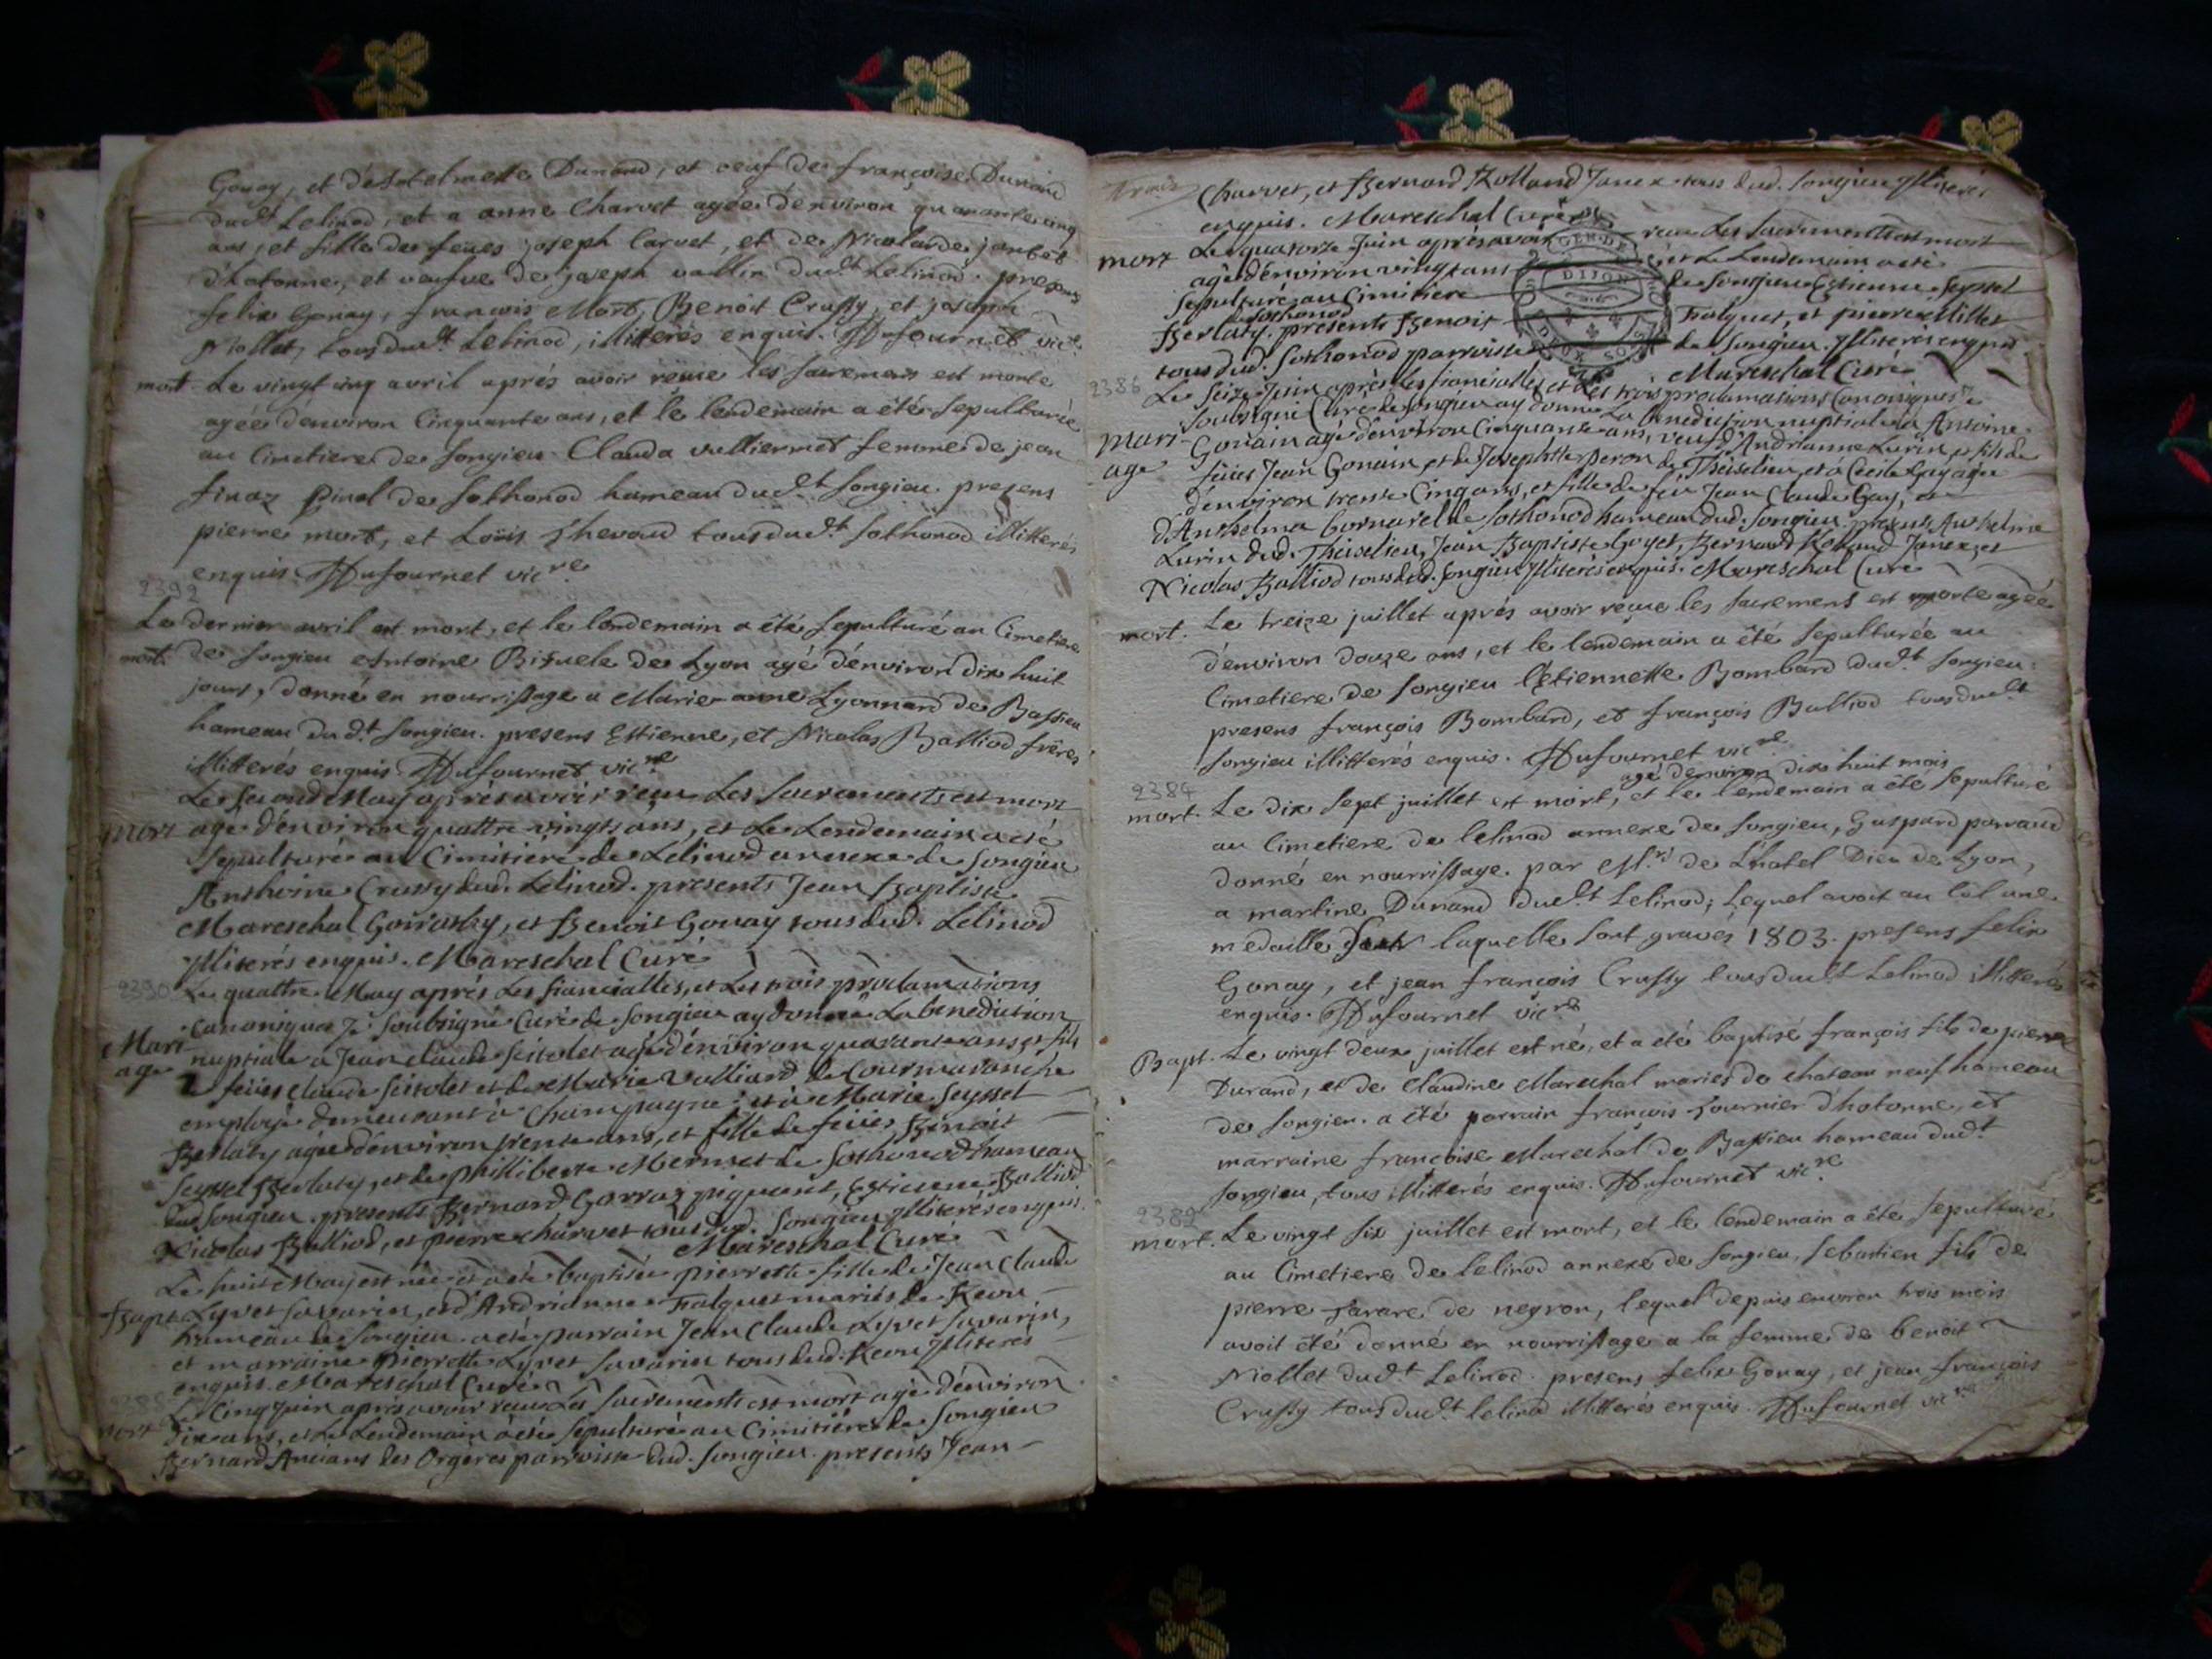 Gonay, et d'Antelmette Dunand, et veuf de françoise Dunand
dud.t Lelinod, et a anne Charvet agée d'environ quarante cinq
ans, et fille de feües joseph Carvet, et de Nicolarde jantet
d'hotonne, et veufve de joseph vallin dud.t Lelinod. presens
felix Gonay, françois Mort, Benoit Crussy, et joseph
Niollet, tous dud.t Lelinod, illitterés enquis. Dufournet vic.re
mort. Le vingt cinq avril aprés avoir reçue les sacremens est morte
agée d'environ Cinquante ans, et le lendemain a été sepulturée
au Cimetiere de Songieu Clauda vulliermet femme de jean
finaz pinel de Sothonod hameau dud.t Songieu. presens
pierre mort, et Loüis Thevond tous dud.t Sothonod illitterés
enquis Dufournet vic.re
2392
Le dernier avril est mort, et le lendemain a été sepulturé au Cimetiere
mort. de Songieu Antoine de Lyon agé d'environ dix huit
jours, donné en nourrissage a Marie anne Lyonnard de Bassieu
hameau dud.t Songieu. presens Estienne, et Nicolas Balliod frères
illitterés enquis Dufournet vic.re
Le second May aprés avoir reçu Les Sacrements est mort
mort agé d'environ quattre vingts ans, et Le Lendemain a eté
sepulturé au Cimitiére de Lelinod annexe de Songieu
Anthoine Crussy dud. Lelinod. presents Jean Baptiste
Mareschal Goiraky, et Benoit Gonay tous dud. Lelinod
ylliterés enquis. Mareschal Curé
2390 Le quattre May aprés Les fiancialles, et Les trois proclamations
Canoniques Je Soubsigné Curé de Songieu ay donné La benediction
Mari- nuptiale a Jean claude Seitolet agé d'environ quarante ans et fils
age de feües Claude Seitolet et de Marie Valliard de Cormaranche
employé demeurant à Champagne: et à Marie Seyssel
Berlaty agée d'environ trente ans, et fille de feües Benoit
Seyssel Berlaty, et de Philliberte Mermet de Sothonod hameau
dud Songieu. presents Bernard Garraz piquant, Estienne Balliod
Nicolas Balliod, et pierre charvet tous dud. Songieu ylliterés enquis.
Mareschal Curé
Le huit May est née et a eté baptisée pierrette fille de Jean Claude
Bapt. Lyvet Savarin, et d'Andrianne Falquet mariés de
hameau de Songieu. a eté parrain Jean Claude Lyvet Savarin,
et marraine pierrette Lyvet Savarin tous dud. ylliterés
enquis. Mareschal Curé
Le Cinq Juin aprés avoir reçu Les Sacrements est mort agé d'environ
mort dix ans, et Le Lendemain a eté sepulturé au Cimitiére de Songieu
Bernard Ancians des Orgeres parroisse dud. Songieu. presents Jean
Trois
Charvet, et Bernard Rolland Janex tous dud. Songieu ylliterés
enquis. Mareschal Curé
mort Le quatorze Juin aprés avoir reçu Les Sacrements est mort
agé d'environ vingt ans et Le Lendemain a eté
sepulturé au Cimitiere de Songieu Estienne Seyssel
de Sothonod
Berlaty. presents Benoit Falquet, et pierre Millet
tous dud. Sothonod parroisse de Songieu. ylliterés enquis
Mareschal Curé
2386 Le Seize Juin aprés Les fiancialles et Les trois proclamations Canoniques Je
Soubsigné Curé de Songieu ay donné La benediction nuptiale a Antoine
Mari- Gonain agé d'environ Cinquante ans, veuf d'Andrianne Lurin et fils de
age feües Jean Gonain, et de Josephtte peron de Theiselieu, et à Cecile Gay agée
d'environ trente Cinq ans, et fille de feu Jean Claude Gay, et
d'Anthelma Cornarel de Sothonod hameau dud. Songieu. presents Anthelme
Lurin dud. Theiselieu, Jean Baptiste Goyet, Bernard Rolland Janex, et
Nicolas Balliod tous dud. Songieu ylliterés enquis. Mareschal Curé
mort. Le treize juillet aprés avoir reçue les sacremens est morte agée
d'environ douze ans, et le lendemain a été sepulturée au
Cimetiere de Songieu Étiennette Bombard dud.t Songieu.
presens françois Bombard, et françois Balliod tous dud.t
Songieu illitterés enquis. Dufournet vic.re
agé d'environ dix huit mois
2384
mort. Le dix sept juillet est mort, et le lendemain a été sepulturé
au Cimetiere de lelinod annexe de Songieu, Gaspard parraud
donné en nourrissage par M.rs de L'hotel Dieu de Lyon,
a martine Dunand dud.t Lelinod; Lequel avoit au Col une
medaille sur laquelle sont gravés 1803. presens felix
Gonay, et jean françois Crussy tous dud.t Lelinod illitterés
enquis. Dufournet vic.re
Bapt. Le vingt deux juillet est né, et a été baptisé françois fils de pierre
Durand, et de Claudine Marechal mariés de chateau neuf hameau
de Songieu. a été parrain françois fournier d'hotonne, et
marraine françoise Marechal de Bassieu hameau dud.t
Songieu, tous illitterés enquis. Dufournet vic.re
2382
mort. Le vingt six juillet est mort, et le lendemain a été sepulturé
au Cimetiere de lelinod annexe de Songieu, Sebastien fils de
pierre farare de neyron, lequel depuis environ trois mois
avoit été donné en nourrissage a la femme de benoit
Niollet dud.t Lelinod. presens felix Gonay, et jean françois
Crussy tous dud.t lelinod illitterés enquis. Dufournet vic.re